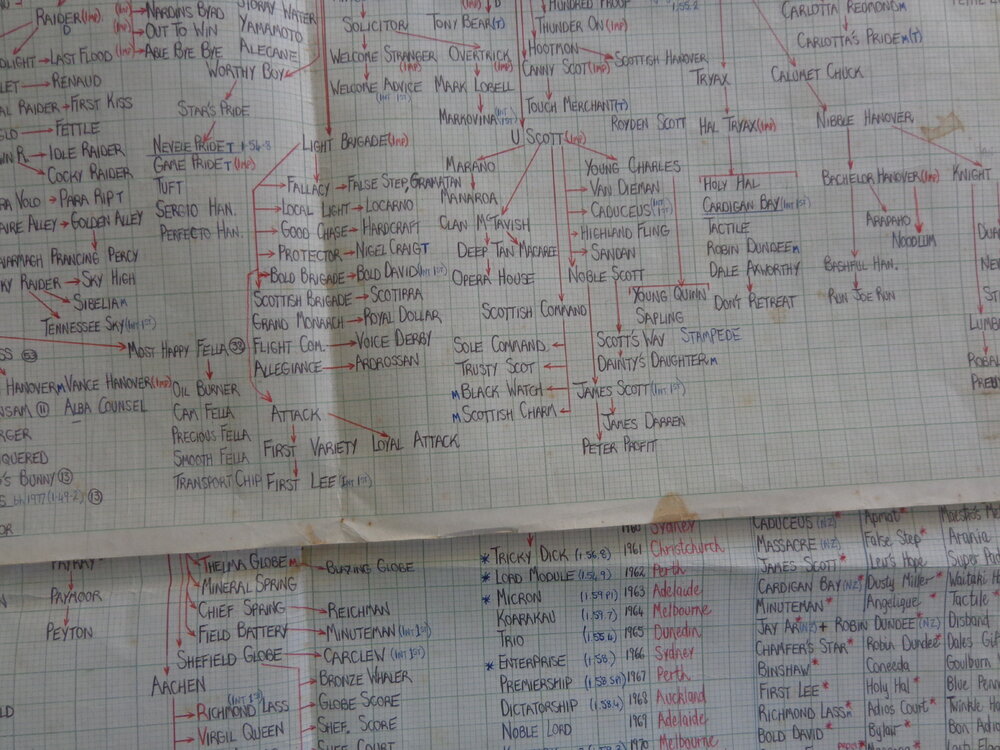 RAIDER (Imp)
D
(Imp) NARDINS BYRD
(Imp) OUT TO WIN
(Imp) ABLE BYE BYE
LAST FLOOD
RENAUD
RAIDER → FIRST KISS
FETTLE
IDLE RAIDER
COCKY RAIDER
VOLO → PARA RIPT
ALLEY → GOLDEN ALLEY
PRANCING PERCY
RAIDER → SKY HIGH
SIBELIA M
TENNESSEE SKY (INT 1ST)
MOST HAPPY FELLA
HANOVER M VANCE HANOVER (Imp)
ALBA COUNSEL
BUNNY (13)
1977 (1.49.2) (13)
STORMY WATER
YAMAMOTO
ALECANE
WORTHY BOY
STAR'S PRIDE
NEVELE PRIDE T 1.54.8
GAME PRIDE T (Imp)
TUFT
SERGIO HAN.
PERFECTO HAN.
OIL BURNER
CAM FELLA
PRECIOUS FELLA
SMOOTH FELLA
TRANSPORT CHIP
LIGHT BRIGADE (Imp)
FALLACY → FALSE STEP, GRAMATAN
LOCAL LIGHT → LOCARNO
GOOD CHASE → HARDCRAFT
PROTECTOR → NIGEL CRAIG T
BOLD BRIGADE → BOLD DAVID (INT 1ST)
SCOTTISH BRIGADE → SCOTIRRA
GRAND MONARCH → ROYAL DOLLAR
FLIGHT COM. → VOICE DERBY
ALLEGIANCE → ARDROSSAN
ATTACK
FIRST VARIETY LOYAL ATTACK
FIRST LEE (INT 1ST)
SOLICITOR
TONY BEAR (T)
WELCOME STRANGER
OVERTRICK
(Imp)
(Imp)
WELCOME ADVICE
(INT 1ST)
MARK LOBELL
MARKOVINA (INT 1ST)
HUNDRED PROOF
1.55.2
THUNDER ON (Imp)
HOOTMON → SCOTTISH HANOVER
CANNY SCOT (Imp)
TOUCH MERCHANT (T)
ROYDEN SCOTT
U SCOTT (Imp)
MARANO
MANAROA
CLAN MCTAVISH
DEEP TAN MACAREE
OPERA HOUSE
SCOTTISH COMMAND
SOLE COMMAND
TRUSTY SCOT
M BLACK WATCH
M SCOTTISH CHARM
YOUNG CHARLES
VAN DIEMAN
CADUCEUS (INT 1ST)
HIGHLAND FLING
SANDAN
NOBLE SCOTT
'YOUNG QUINN'
SAPLING
SCOTT'S WAY STAMPEDE
DAINTY'S DAUGHTER M
JAMES SCOTT (INT 1ST)
JAMES DARREN
PETER PROFIT
CARLOTTA REDMOND M
CARLOTTA'S PRIDE M (T)
TRYAX
CALUMET CHUCK
HAL TRYAX (Imp)
NIBBLE HANOVER
'HOLY HAL
CARDIGAN BAY (INT 1ST)
TACTILE
ROBIN DUNDEE M
DALE AXWORTHY
DON'T RETREAT
BACHELOR HANOVER (Imp)
KNIGHT
ARAPAHO
NOODLUM
BASHFUL HAN.
RUN JOE RUN
PAYMOOR
PEYTON
THELMA GLOBE M → BLAZING GLOBE
MINERAL SPRING
CHIEF SPRING → REICHMAN
FIELD BATTERY → MINUTEMAN (INT 1ST)
SHEFIELD GLOBE CARCLEW (INT 1ST)
AACHEN
BRONZE WHALER
(INT 1ST)
RICHMOND LASS
GLOBE SCORE
VIRGIL QUEEN
SHEF. SCORE
SHEF COURT
1960 Sydney
* TRICKY DICK (1.56.8) 1961 Christchurch
* LORD MODULE (1.54.9) 1962 Perth
* MICRON (1.59 P1) 1963 Adelaide
KOARAKAU (1.59.7) 1964 Melbourne
TRIO (1.55.6) 1965 Dunedin
* ENTERPRISE (1.58.) 1966 Sydney
PREMIERSHIP 1967 Perth
DICTATORSHIP (1.58.4) 1968 Auckland
NOBLE LORD 1969 Adelaide
1970 Melbourne
CADUCEUS (NZ) Apmat *
MASSACRE (NZ) False Step *
JAMES SCOTT * Leu's Hope
CARDIGAN BAY (NZ) * Dusty Miller * Waitaki
MINUTEMAN * Angelique * Tactile
JAY AR (NZ) + ROBIN DUNDEE (NZ) Disband
CHAMFER'S STAR * Robin Dundee * Dales
BINSHAW * Coneeda Goulburn
FIRST LEE * Holy Hal * Blue
RICHMOND LASS M * Adios Court * Twinkle
BOLD DAVID * Bylair * Bon Adios